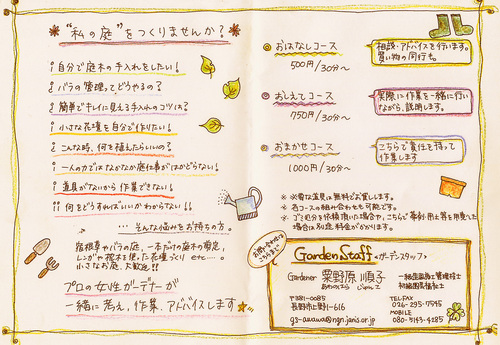 "私の庭"をつくりませんか?
自分で庭木の手入れをしたい!
バラの管理ってどうやるの?
簡単でキレイに見える手入れのコツは?
小さな花壇を自分で作りたい!
こんな時、何を植えたらいいの?
一人の力ではなかなか庭仕事がはかどらない!
道具がないから作業できない!
何をどうすればいいかわからない!!
... そんな悩みをお持ちの方。
宿根草やバラの庭、一本だけの庭木の剪定、
レンガや枕木を使った花壇づくり etc...
小さなお庭、大歓迎!!
プロの女性ガーデナーが
一緒に考え、作業、アドバイスします
おはなしコース
500円/30分~
相談・アドバイスを行います。
買い物の同行も。
おしえてコース
750円/30分~
実際に作業を一緒に行い
ながら、説明します。
おまかせコース
1000円/30分~
こちらで責任を持って
作業します
※ 必要な道具は無料でお貸しします。
※ 各コースの組み合わせも可能です。
※ ゴミ処分を依頼頂いた場合や、こちらで薬剤・用土等を用意した
場合は別途料金がかかります。
お問い合わせは
こちらまで
Garden Staff <ガーデンスタッフ>
Gardener 粟野原 順子
あわのはら じゅんこ
〒381-0085
長野市上野1-616
gs-awawa@ngn.janis.or.jp
TEL.FAX
026-295-7545
MOBILE
080-5143-4285